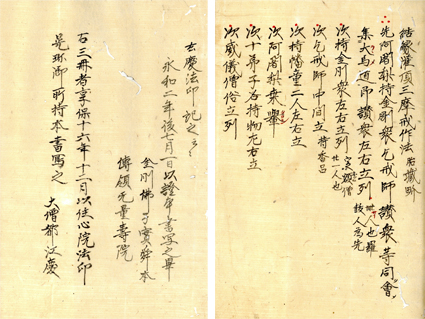 結縁灌頂三摩戒作法
先阿闍梨持金剛衆乞戒師讃衆等同會
集大馬道師讃衆左右立列
次持金剛衆左右立列
次乞戒師中間立持香呂
次持幡童二人左右立
次阿闍梨乗輿
次十弟子各持物左右立
次威儀僧俗立列
玄慶法印記之
永和二年後七月一日以證本書写之畢
金剛佛子實舜本
傳領无量壽院
右三冊者享保十六年十二月以住心院法印
晃珍御所持本書写之
大僧都江慶